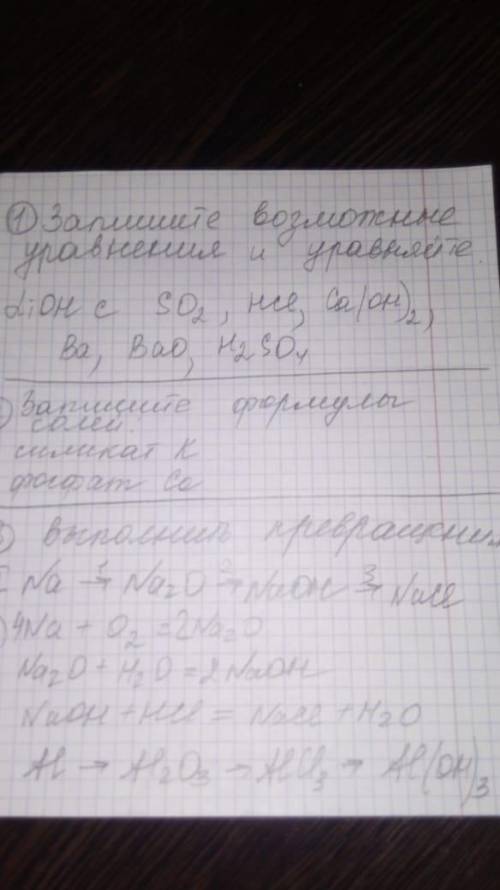 ① Запишите возможные
уравнения и уравняйте.
LiOH с SO₂, HCl, Ca(OH)₂,
Ba, BaO, H₂SO₄
Запишите формулы
солей.
силикат К
фосфат Ca
выполнить превращения
Na →¹ Na₂O →² NaOH →³ NaCl
4Na + O₂ = 2Na₂O
Na₂O + H₂O = 2NaOH
NaOH + HCl = NaCl + H₂O
Al → Al₂O₃ → AlCl₃ → Al(OH)₃